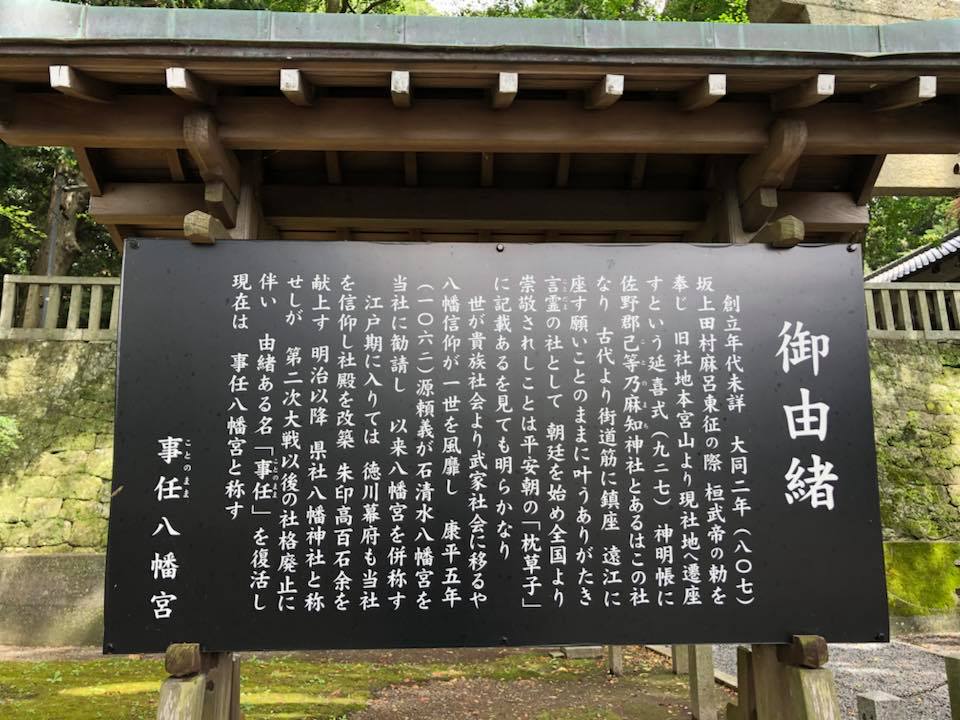 御由緒
創立年代未詳　大同二年（八〇七）
坂上田村麻呂東征の際　桓武帝の勅を
奉じ　旧社地本宮山より現社地へ遷座
すという延喜式（九二七）　神明帳に
佐野郡己等乃麻知神社とあるはこの社
なり　古代より街道筋に鎮座　遠江に
座す願いことのままに叶うありがたき
言霊の社として　朝廷を始め全国より
崇敬されしことは平安朝の「枕草子」
に記載あるを見ても明らかなり
世が貴族社会より武家社会に移るや
八幡信仰が一世を風靡し　康平五年
（一〇六二）源頼義が石清水八幡宮を
当社に勧請し　以来八幡宮を併称す
江戸期に入りては　徳川幕府も当社
を信仰し社殿を改築　朱印高百石余を
献上す　明治以降　県社八幡神社と称
せしが　第二次大戦以後の社格廃止に
伴い　由緒ある名「事任」を復活し
現在は　事任八幡宮と称す
事任八幡宮
ことのまま